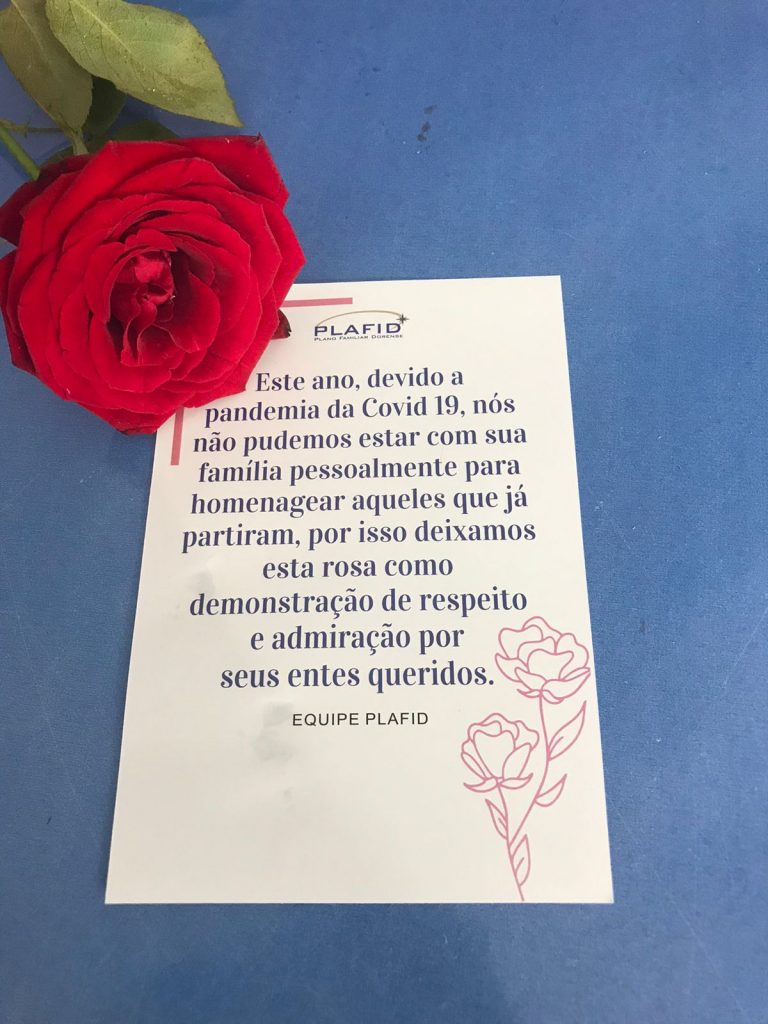 PLAFID
PLANO FAMILIAR DORENSE
Este ano, devido a
pandemia da Covid 19, nós
não pudemos estar com sua
família pessoalmente para
homenagear aqueles que já
partiram, por isso deixamos
esta rosa como
demonstração de respeito
e admiração por
seus entes queridos.
EQUIPE PLAFID